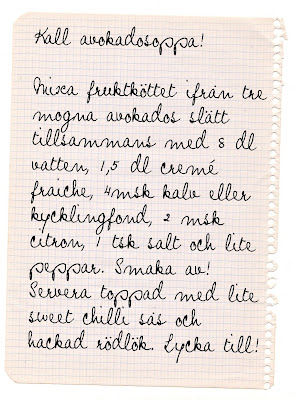 Kall avokadosoppa!
Mixa fruktköttet ifrån tre
mogna avokados slätt
tillsammans med 8 dl
vatten, 1,5 dl cremé
fraiche, 4msk kalv eller
kycklingfond, 2 msk
citron, 1 tsk salt och lite
peppar. Smaka av!
Servera toppad med lite
sweet chilli sås och
hackad rödlök. Lycka till!